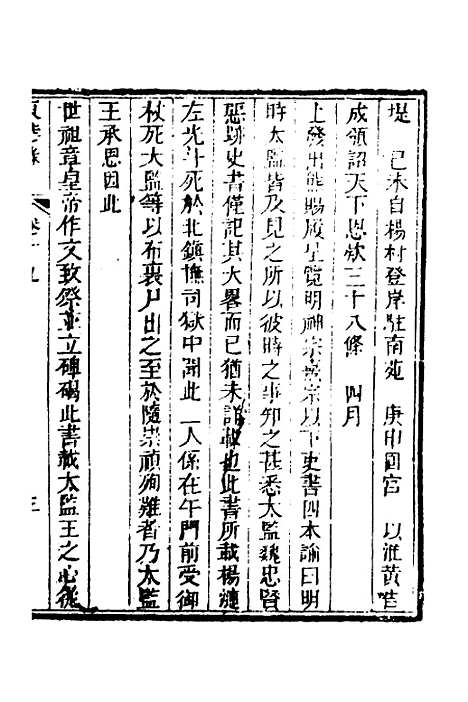 堤　己未自楊村登岸駐南苑　庚申囘宮　以淮黃告
成頒詔天下恩欵三十八條　四月
上發出熊賜履呈覽明神宗熹宗以下史書四本諭曰明
時太監皆及見之所以彼時之事知之甚悉太監魏忠賢
惡跡史書僅記其大畧而已猶未詳載也此書所載楊漣
左光斗死於北鎮撫司獄中聞此二人係在午門前受御
杖死太監等以布裹尸出之至於隨崇禎殉難者乃太監
王承恩因此
世祖章皇帝作文致祭並立碑碣此書載太監王之心從
東華錄　卷十九　三